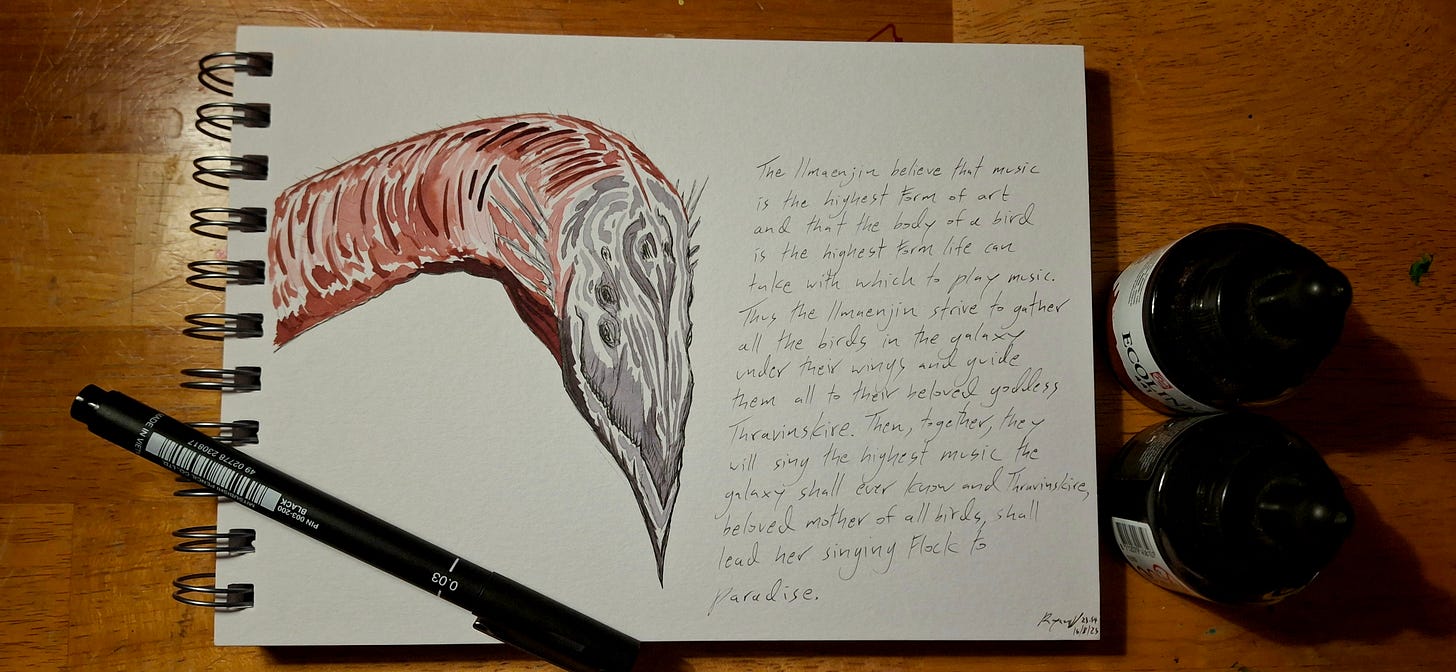 The Ilmaenjin believe that music
is the highest form of art
and that the body of a bird
is the highest form life can
take with which to play music.
Thus the Ilmaenjin strive to gather
all the birds in the galaxy
under their wings and guide
them all to their beloved goddess
Thravinskire. Then, together, they
will sing the highest music the
galaxy shall ever know and Thravinskire,
beloved mother of all birds, shall
lead her singing Flock to
paradise.
23:54
16/8/25
MADE IN
49 02778 230817
PIN 003-200
BLACK
0.03
ECOLINE